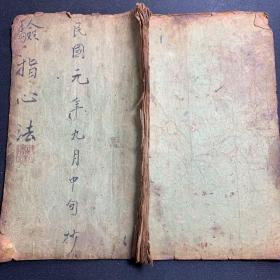 民國元年九月中旬抄
驗指心法